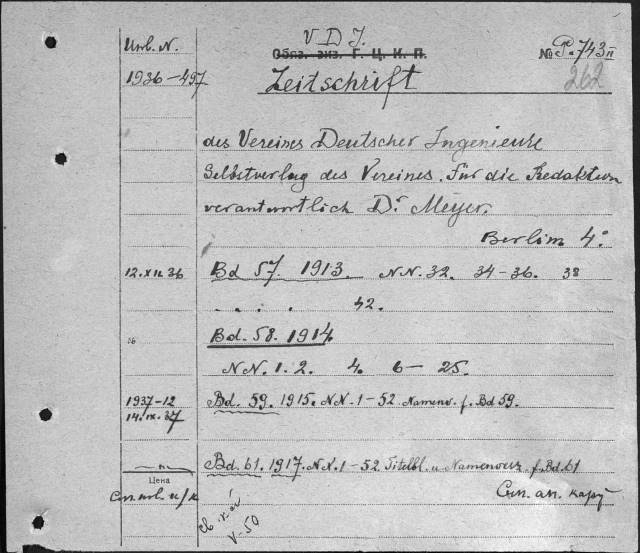 V D J.
Инв. N.
Обяз. экз. Г. Ц. К. П.
№ P. 743 II
1936-497
Zeitschrift
262
des Vereines Deutscher Ingenieure
Selbstverlag des Vereines. Für die Redaktion
verantwortlich Dr Meyer.
Berlin 4°
12.XII 36 Bd 57. 1913. NN. 32. 34-36. 38
42.
Bd. 58. 1914
NN. 1. 2. 4. 6-25.
1937-12 Bd. 59. 1915. NN. 1-52 Namenv. f. Bd 59.
14.IX.37
-"- Bd. 61. 1917. NN. 1-52 Titelbl. u Namenverz. f. Bd. 61
Цена
См. инв. и/к
См. ан. карт
V-50